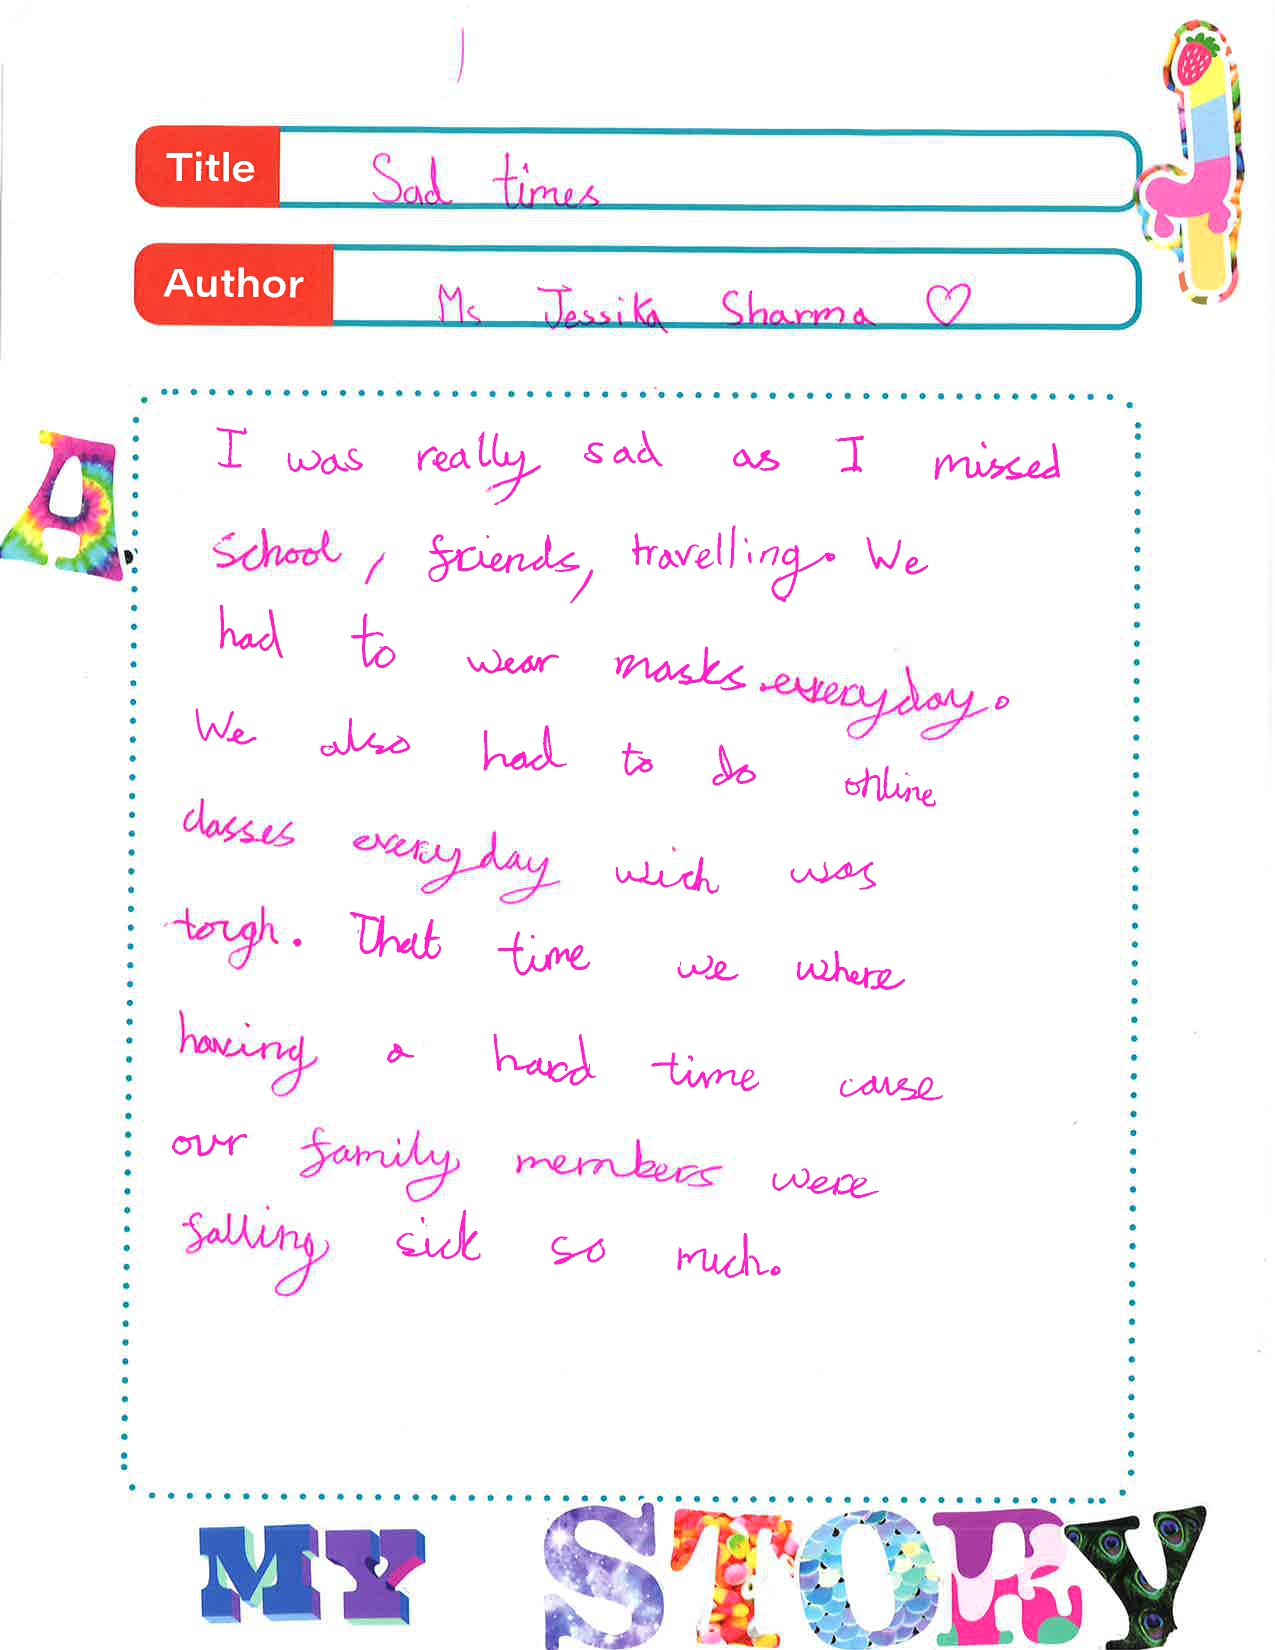 Title Sad times
Author Ms Jessika Sharma ♡
I was really sad as I missed
school, friends, travelling. We
had to wear masks everyday.
We also had to do online
classes everyday wich was
torgh. That time we where
having a hard time cause
our family members were
falling sick so much.
A
MY STORY